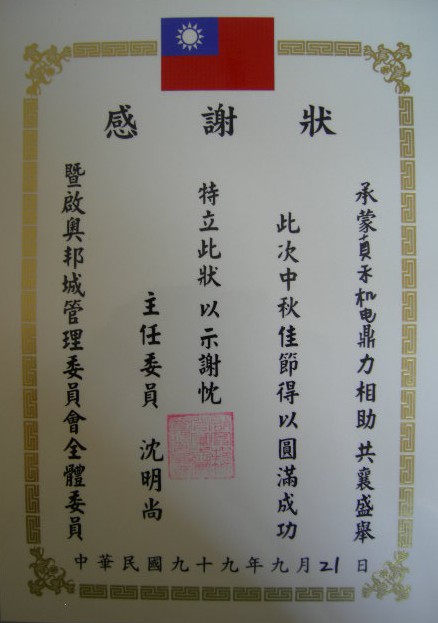 感謝狀
承蒙貞禾机电鼎力相助共襄盛舉
此次中秋佳節得以圓滿成功
特立此狀以示謝忱
主任委員 沈明尚
暨啟奧邦城管理委員會全體委員
中華民國九十九年九月21日